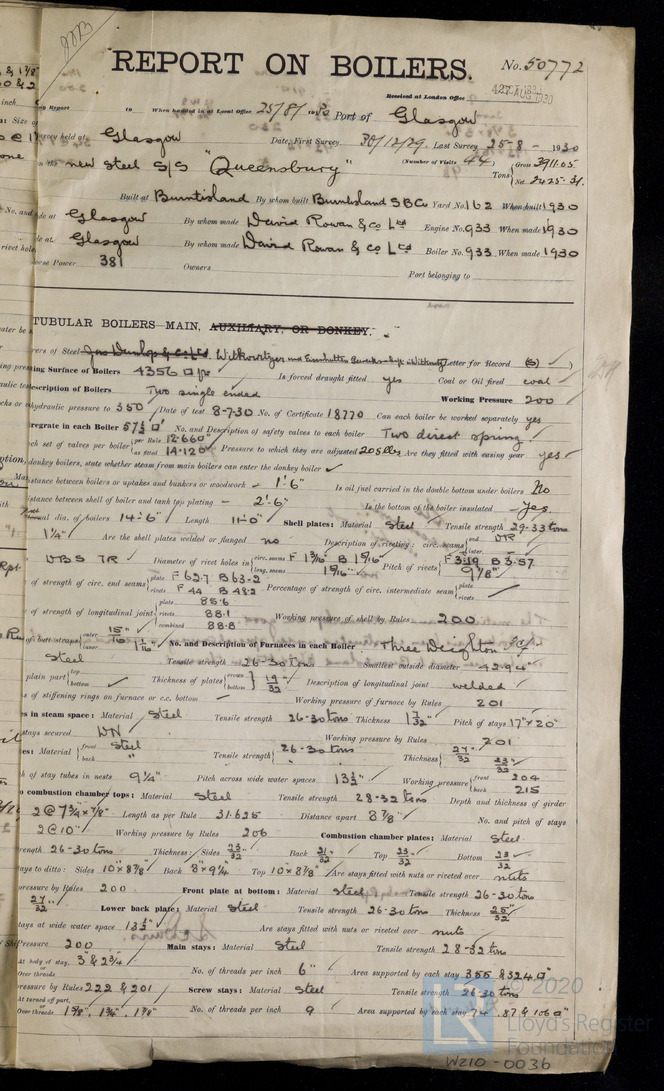 REPORT ON BOILERS.
No. 50772
Received at London Office
Report to When handed in at Local Office 25/8/1930 Port of Glasgow
Survey held at Glasgow Date, First Survey 30/12/29 Last Survey 25-8-1930
on the new Steel S/S "Queensbury" (Number of Visits 44) Tons Gross 3911.05
Net 2425.31
Built at Burntisland By whom built Burntisland S B Co Yard No. 162 When built 1930
made at Glasgow By whom made David Rowan & Co Ltd Engine No. 933 When made 1930
made at Glasgow By whom made David Rowan & Co Ltd Boiler No. 933 When made 1930
Horse Power 381 Owners Port belonging to
TUBULAR BOILERS MAIN, AUXILIARY, OR DONKEY.
of Steel Jas Dunlop & Co Ltd. Letter for Record (S)
Heating Surface of Boilers 4356 Is forced draught fitted yes Coal or Oil fired coal
Description of Boilers Two single ended Working Pressure 200
hydraulic pressure to 350 Date of test 8-7-30 No. of Certificate 18770 Can each boiler be worked separately yes
in each Boiler 57½ No. and Description of safety valves to each boiler Two direct spring
each set of valves per boiler per Rule 12.660" as fitted 14.120" Pressure to which they are adjusted 205 lbs Are they fitted with easing gear yes
donkey boilers, state whether steam from main boilers can enter the donkey boiler ✓
distance between boilers or uptakes and bunkers or woodwork - 1'-6" Is oil fuel carried in the double bottom under boilers No
distance between shell of boiler and tank top plating - 2'-6" Is the bottom of the boiler insulated Yes
dia. of boilers 14'-6" Length 11'-0" Shell plates: Material Steel Tensile strength 29-33 tons
1¼" Are the shell plates welded or flanged no Description of riveting: circ. seams end DR
DBS TR Diameter of rivet holes in circ. seams F 1 3/16" B 1 5/16 long. seams 1 5/16" Pitch of rivets F 3.19 B 3.57
9 7/8"
of strength of circ. end seams plate F 62.7 B 63.2 rivets F 44 B 48.2 Percentage of strength of circ. intermediate seam plate rivets
of strength of longitudinal joint plate 86.6 rivets 88.1 combined 88.8 Working pressure of shell by Rules 200
of butt straps outer 15/16" inner 1 1/16" No. and Description of Furnaces in each Boiler Three Deighton
Steel Tensile strength 26-30 tons Smallest outside diameter 42.94"
plain part top bottom Thickness of plates crown bottom 19/32 Description of longitudinal joint welded
of stiffening rings on furnace or c.c. bottom Working pressure of furnace by Rules 201
in steam space: Material Steel Tensile strength 26-30 tons Thickness 1 7/32" Pitch of stays 17" x 20"
stays secured DN Working pressure by Rules 201
Material front Steel back " Tensile strength 26-30 tons Thickness 27/32" 23/32"
of stay tubes in nests 9¼" Pitch across wide water spaces 13½" Working pressure front 204 back 215
combustion chamber tops: Material Steel Tensile strength 28-32 tons Depth and thickness of girder
2 @ 7¾ x 7/8" Length as per Rule 31.625 Distance apart 8 7/8" No. and pitch of stays
2 @ 10" Working pressure by Rules 206 Combustion chamber plates: Material Steel
strength 26-30 tons Thickness: Sides 23/32 Back 21/32 Top 23/32 Bottom 23/32
stays to ditto: Sides 10" x 8 7/8" Back 8" x 9¼" Top 10" x 8 7/8" Are stays fitted with nuts or riveted over nuts
pressure by Rules 200 Front plate at bottom: Material Steel Tensile strength 26-30 tons
27/32" Lower back plate: Material Steel Tensile strength 26-30 tons Thickness 25/32"
stays at wide water space 13½" Are stays fitted with nuts or riveted over nuts
Pressure 200 Main stays: Material Steel Tensile strength 28-32 tons
At body of stay, or Over threads 3" & 2¾" No. of threads per inch 6" Area supported by each stay 355 & 324
pressure by Rules 222 & 201 Screw stays: Material Steel Tensile strength 26-30 tons
At turned off part, or Over threads No. of threads per inch 9 Area supported by each stay 74, 87 & 106
© 2020
Lloyd's Register
Foundation
W210-0036